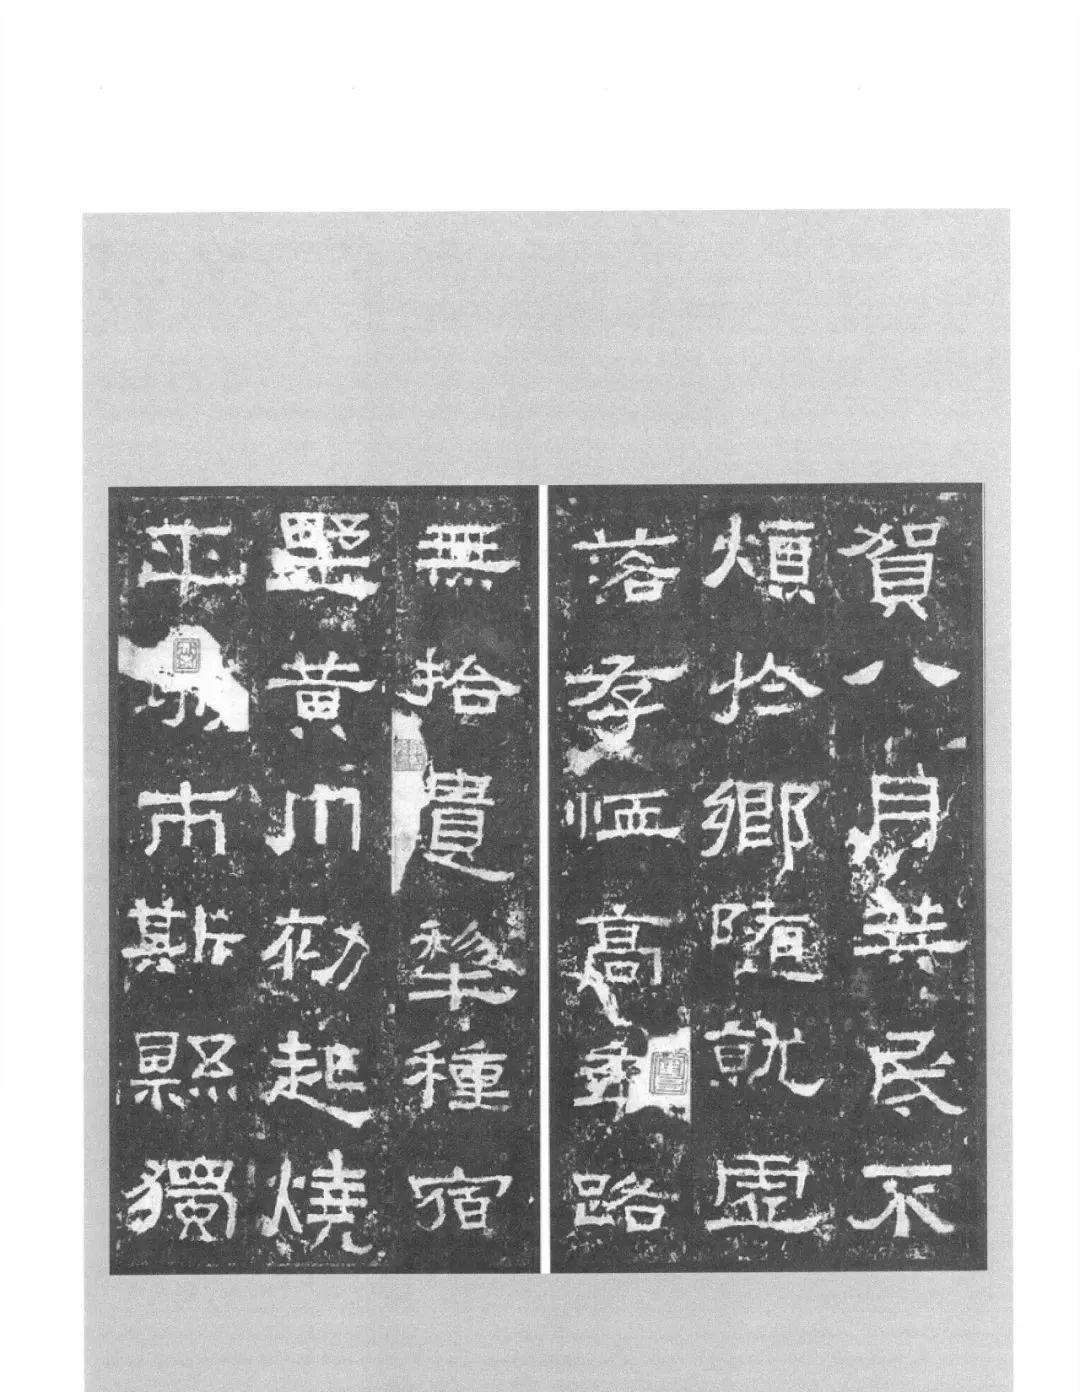 賀八月筭民不
煩於鄉隨就虛
落存恤高年路
無拾遺犂種宿
野黃巾初起燒
平 市斯縣獨